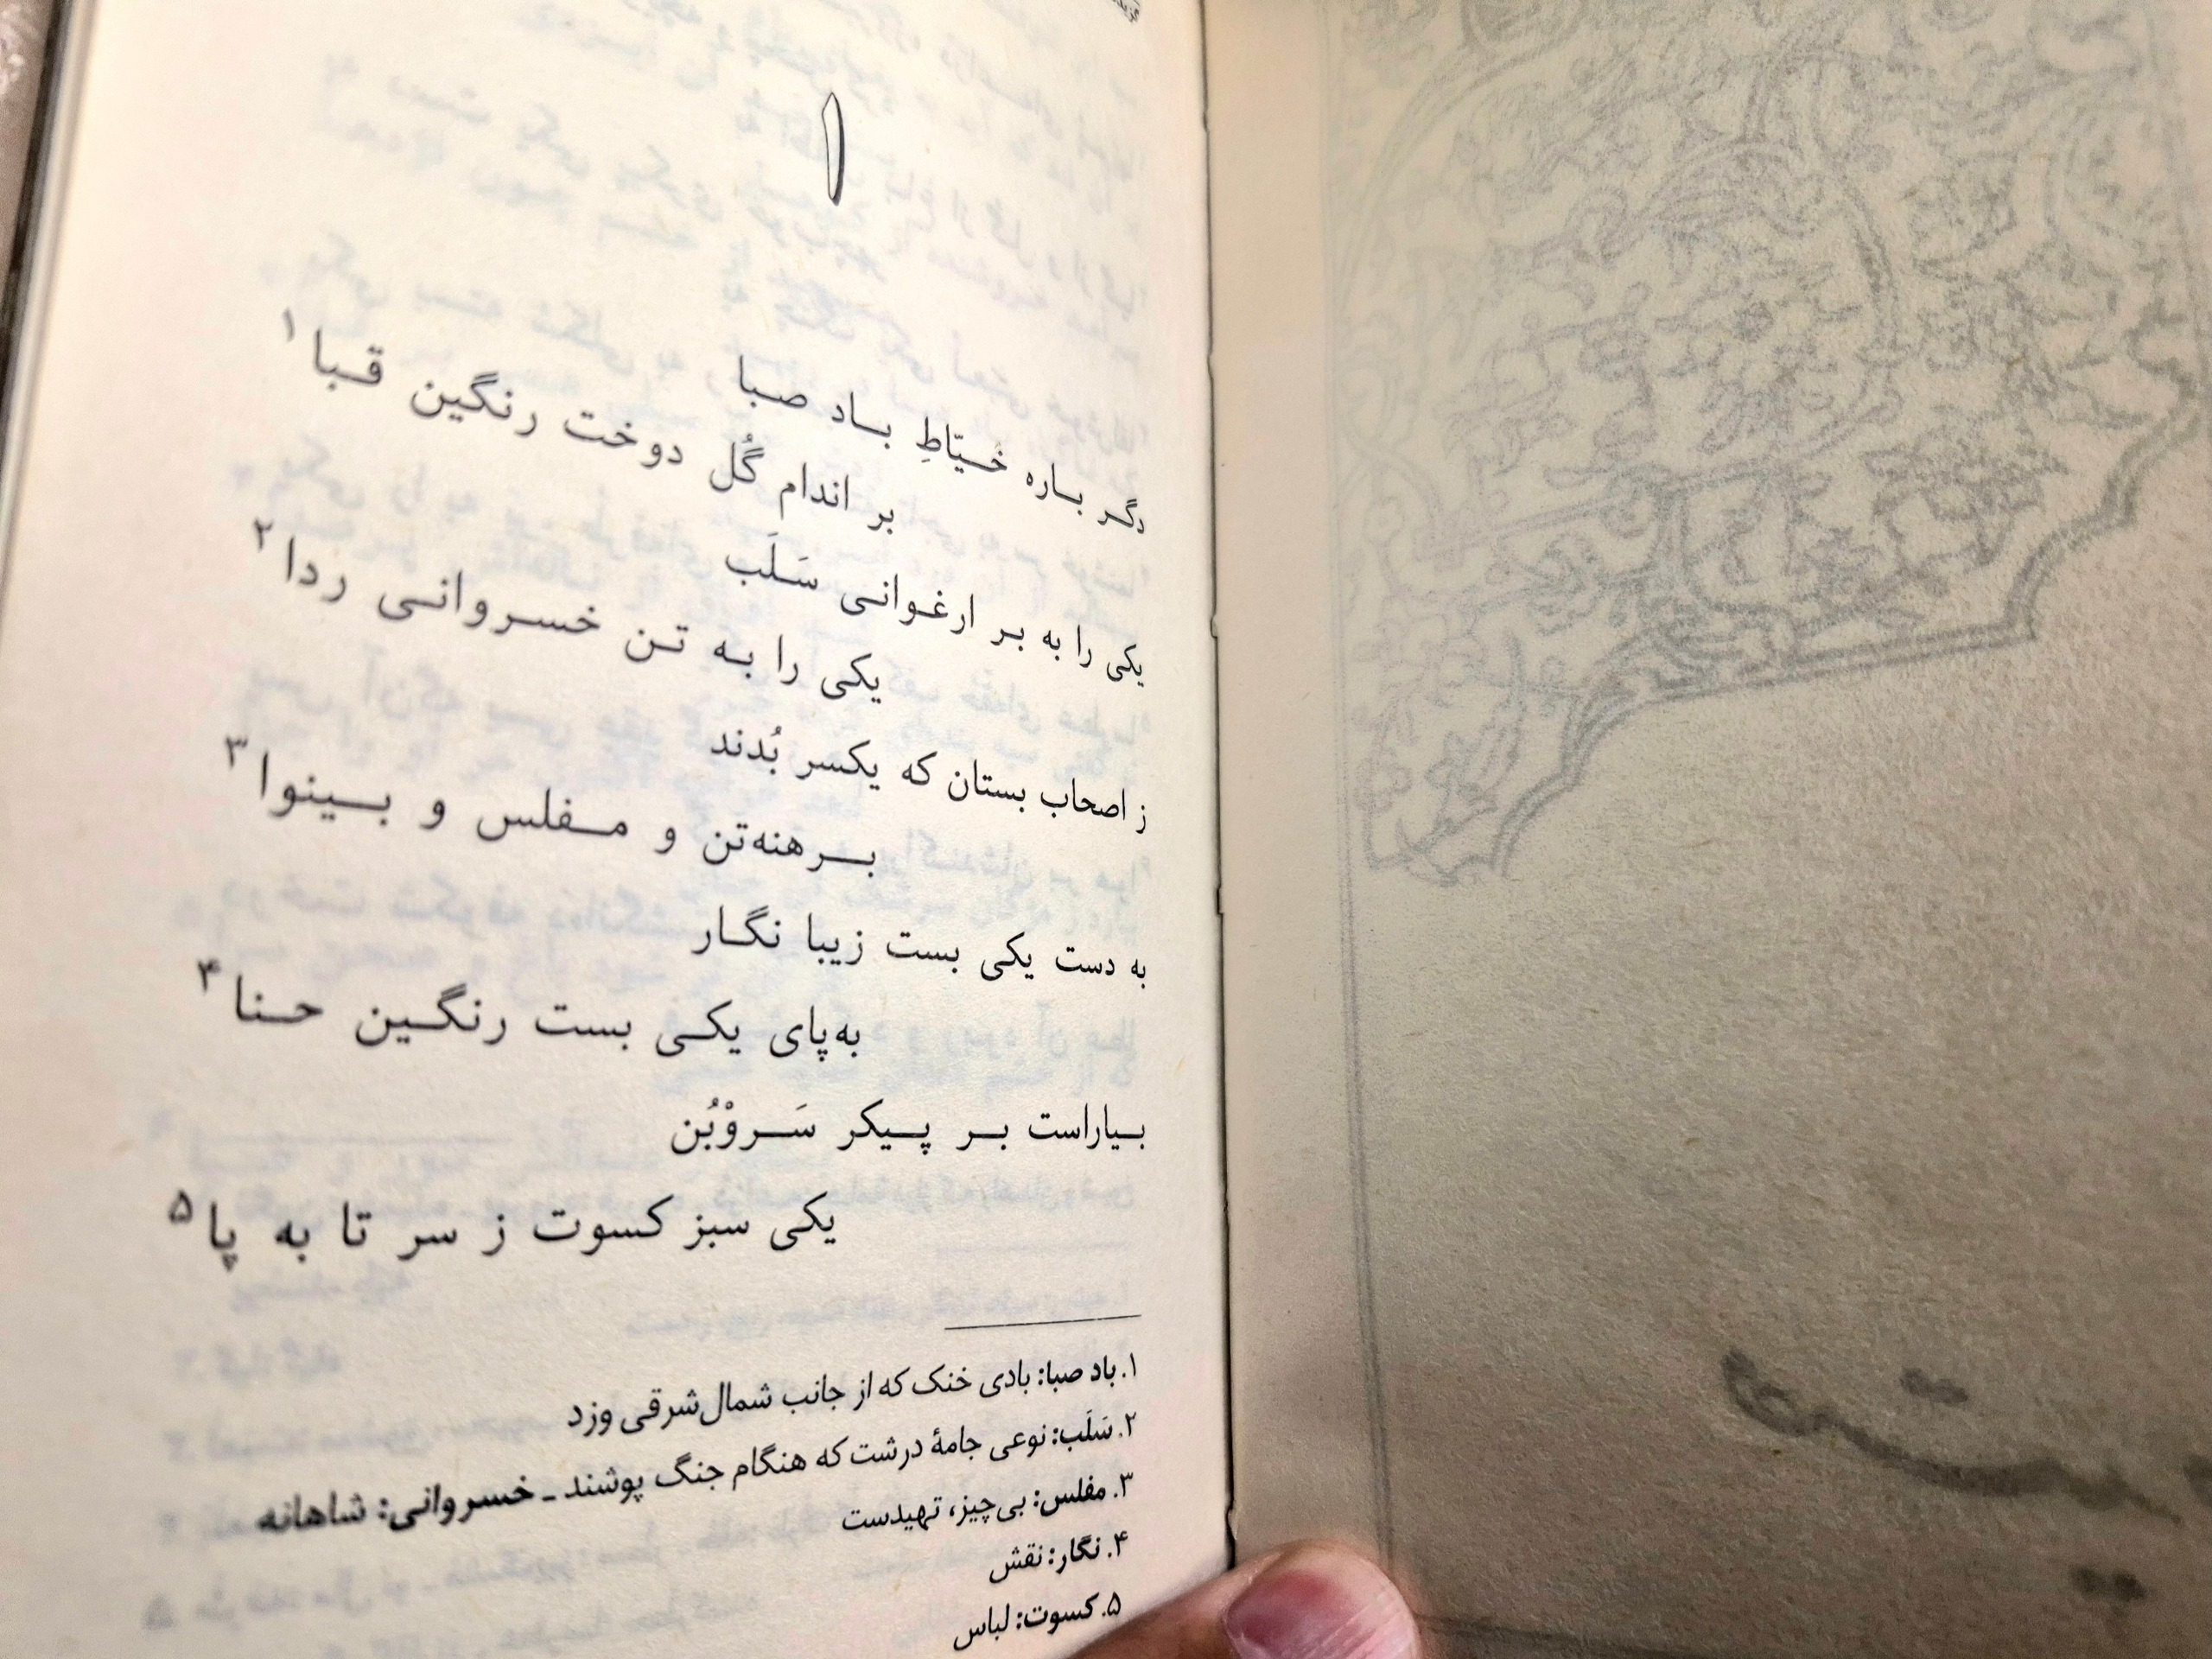 ۱
دگر باره خُیّاطِ باد صبا
بر اندام گُل دوخت رنگین قبا ۱
یکی را به بر ارغوانی سَلَب
یکی را به تن خسروانی ردا ۲
ز اصحاب بستان که یکسر بُدند
برهنه‌تن و مفلس و بینوا ۳
به دست یکی بست زیبا نگار
به‌پای یکی بست رنگین حنا ۴
بیاراست بر پیکر سَروْبُن
یکی سبز کسوت ز سر تا به پا ۵
۱. باد صبا: بادی خنک که از جانب شمال‌شرقی وزد
۲. سَلَب: نوعی جامهٔ درشت که هنگام جنگ پوشند ـ خسروانی: شاهانه
۳. مفلس: بی‌چیز، تهیدست
۴. نگار: نقش
۵. کسوت: لباس